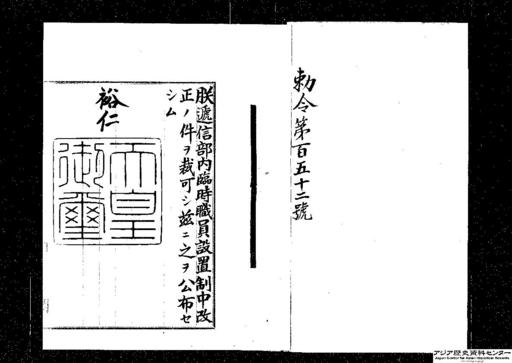 勅令第百五十二號
朕遞信部内臨時職員設置制中改
正ノ件ヲ裁可シ茲ニ之ヲ公布セ
シム
裕仁
天皇御璽
アジア歴史資料センター
Japan Center for Asian Historical Records